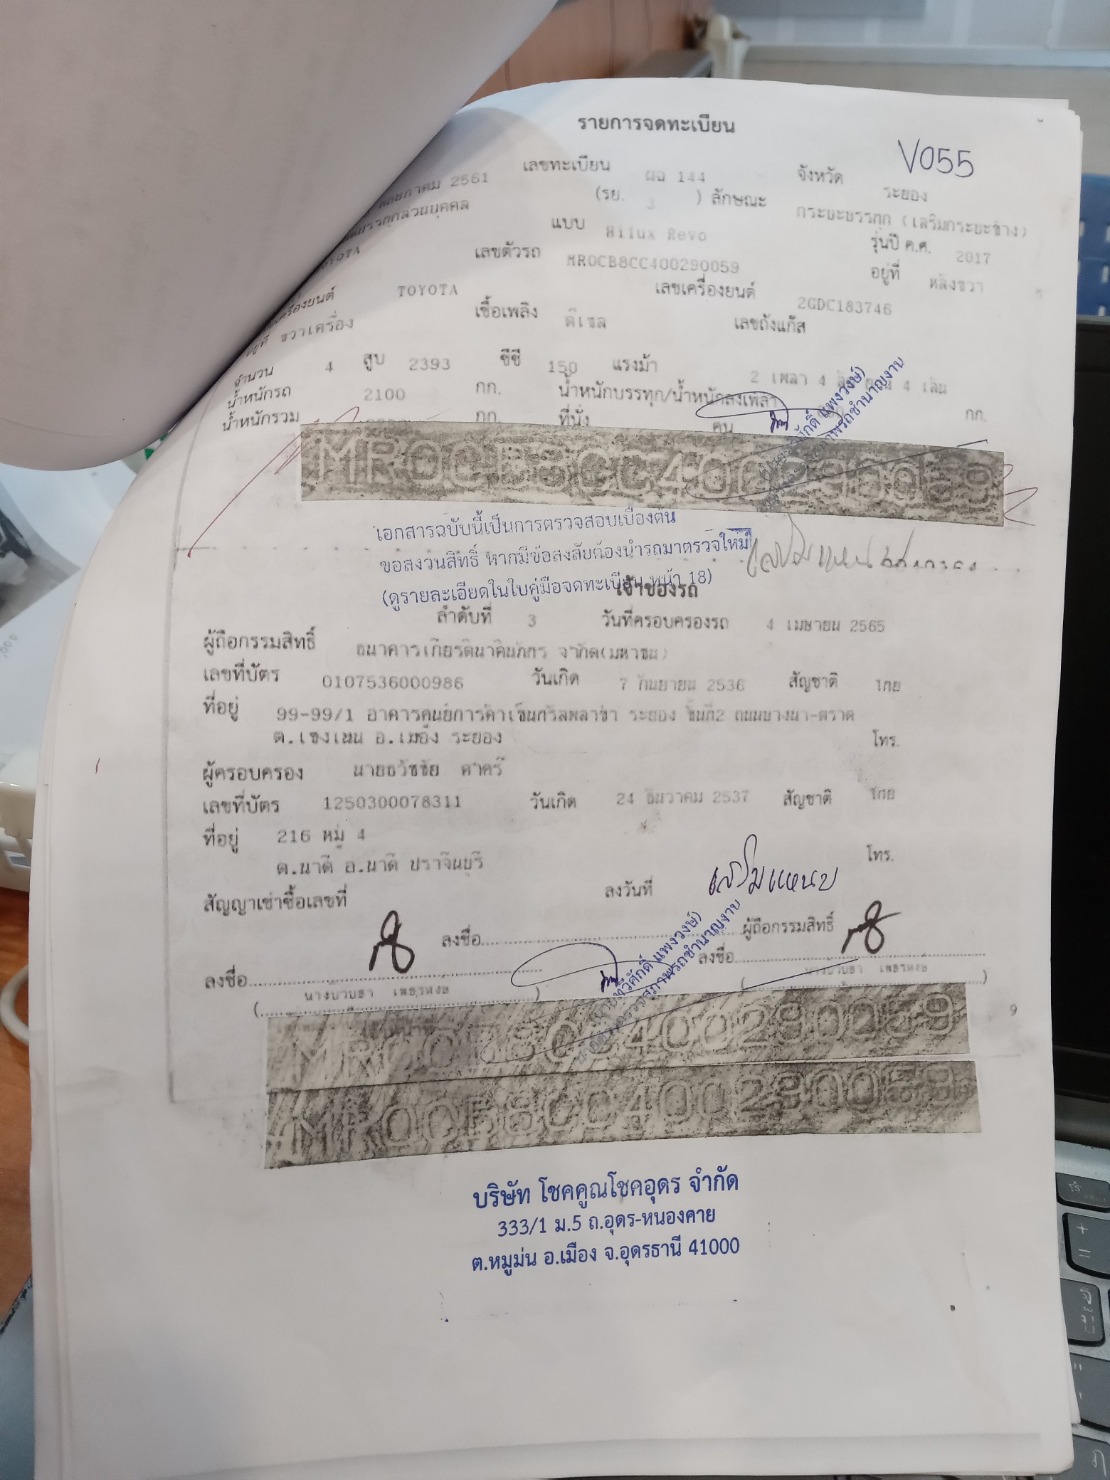 รายการจดทะเบียน
V055
2561 เลขทะเบียน ผฉ 144 จังหวัด ระยอง
(รย. 3 ) ลักษณะ กระบะบรรทุก (เสริมกระบะข้าง)
แบบ Hilux Revo รุ่นปี ค.ศ. 2017
เลขตัวรถ MR0CB8CC400290059 อยู่ที่ หลังขวา
TOYOTA เลขเครื่องยนต์ 2GDC183746
ขวาเครื่อง เชื้อเพลิง ดีเซล เลขถังแก๊ส
จำนวน 4 สูบ 2393 ซีซี 150 แรงม้า 2 เพลา 4 ล้อ 4 เส้น
น้ำหนักรถ 2100 กก. น้ำหนักบรรทุก/น้ำหนักลงเพลา กก.
น้ำหนักรวม กก. ที่นั่ง คน
MR0CB8CC400290059
เอกสารฉบับนี้เป็นการตรวจสอบเบื้องต้น
ขอสงวนสิทธิ์ หากมีข้อสงสัยต้องนำรถมาตรวจใหม่
(ดูรายละเอียดในใบคู่มือจดทะเบียน หน้า 18)
เจ้าของรถ
ลำดับที่ 3 วันที่ครอบครองรถ 4 เมษายน 2565
ผู้ถือกรรมสิทธิ์ ธนาคารเกียรตินาคินภัทร จำกัด(มหาชน)
เลขที่บัตร 0107536000986 วันเกิด 7 กันยายน 2536 สัญชาติ ไทย
ที่อยู่ 99-99/1 อาคารศูนย์การค้าเซ็นทรัลพลาซ่า ระยอง ชั้นที่2 ถนนบางนา-ตราด
ต.เชิงเนิน อ.เมือง ระยอง โทร.
ผู้ครอบครอง นายธวัชชัย
เลขที่บัตร 1250300078311 วันเกิด 24 ธันวาคม 2537 สัญชาติ ไทย
ที่อยู่ 216 หมู่ 4
ต.นาดี อ.นาดี ปราจีนบุรี โทร.
สัญญาเช่าซื้อเลขที่ ลงวันที่
ลงชื่อ ผู้ถือกรรมสิทธิ์
ลงชื่อ ลงชื่อ
9
MR0CB8CC400290059
MR0CB8CC400290059
บริษัท โชคคูณโชคอุดร จำกัด
333/1 ม.5 ถ.อุดร-หนองคาย
ต.หมูม่น อ.เมือง จ.อุดรธานี 41000